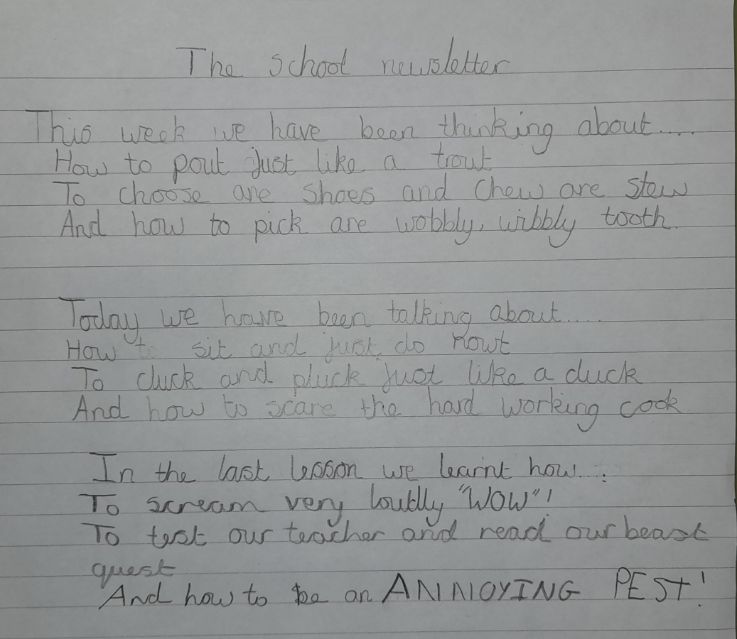 The school newsletter
This week we have been thinking about.....
How to pout just like a trout
To choose are shoes and chew are stew
And how to pick are wobbly, wibbly tooth.
Today we have been talking about.....
How to sit and just do nowt
To cluck and pluck just like a duck
And how to scare the hard working cook
In the last lesson we learnt how...
To scream very loudly "WOW"!
To test our teacher and read our beast
quest
And how to be an ANNOYING PEST!